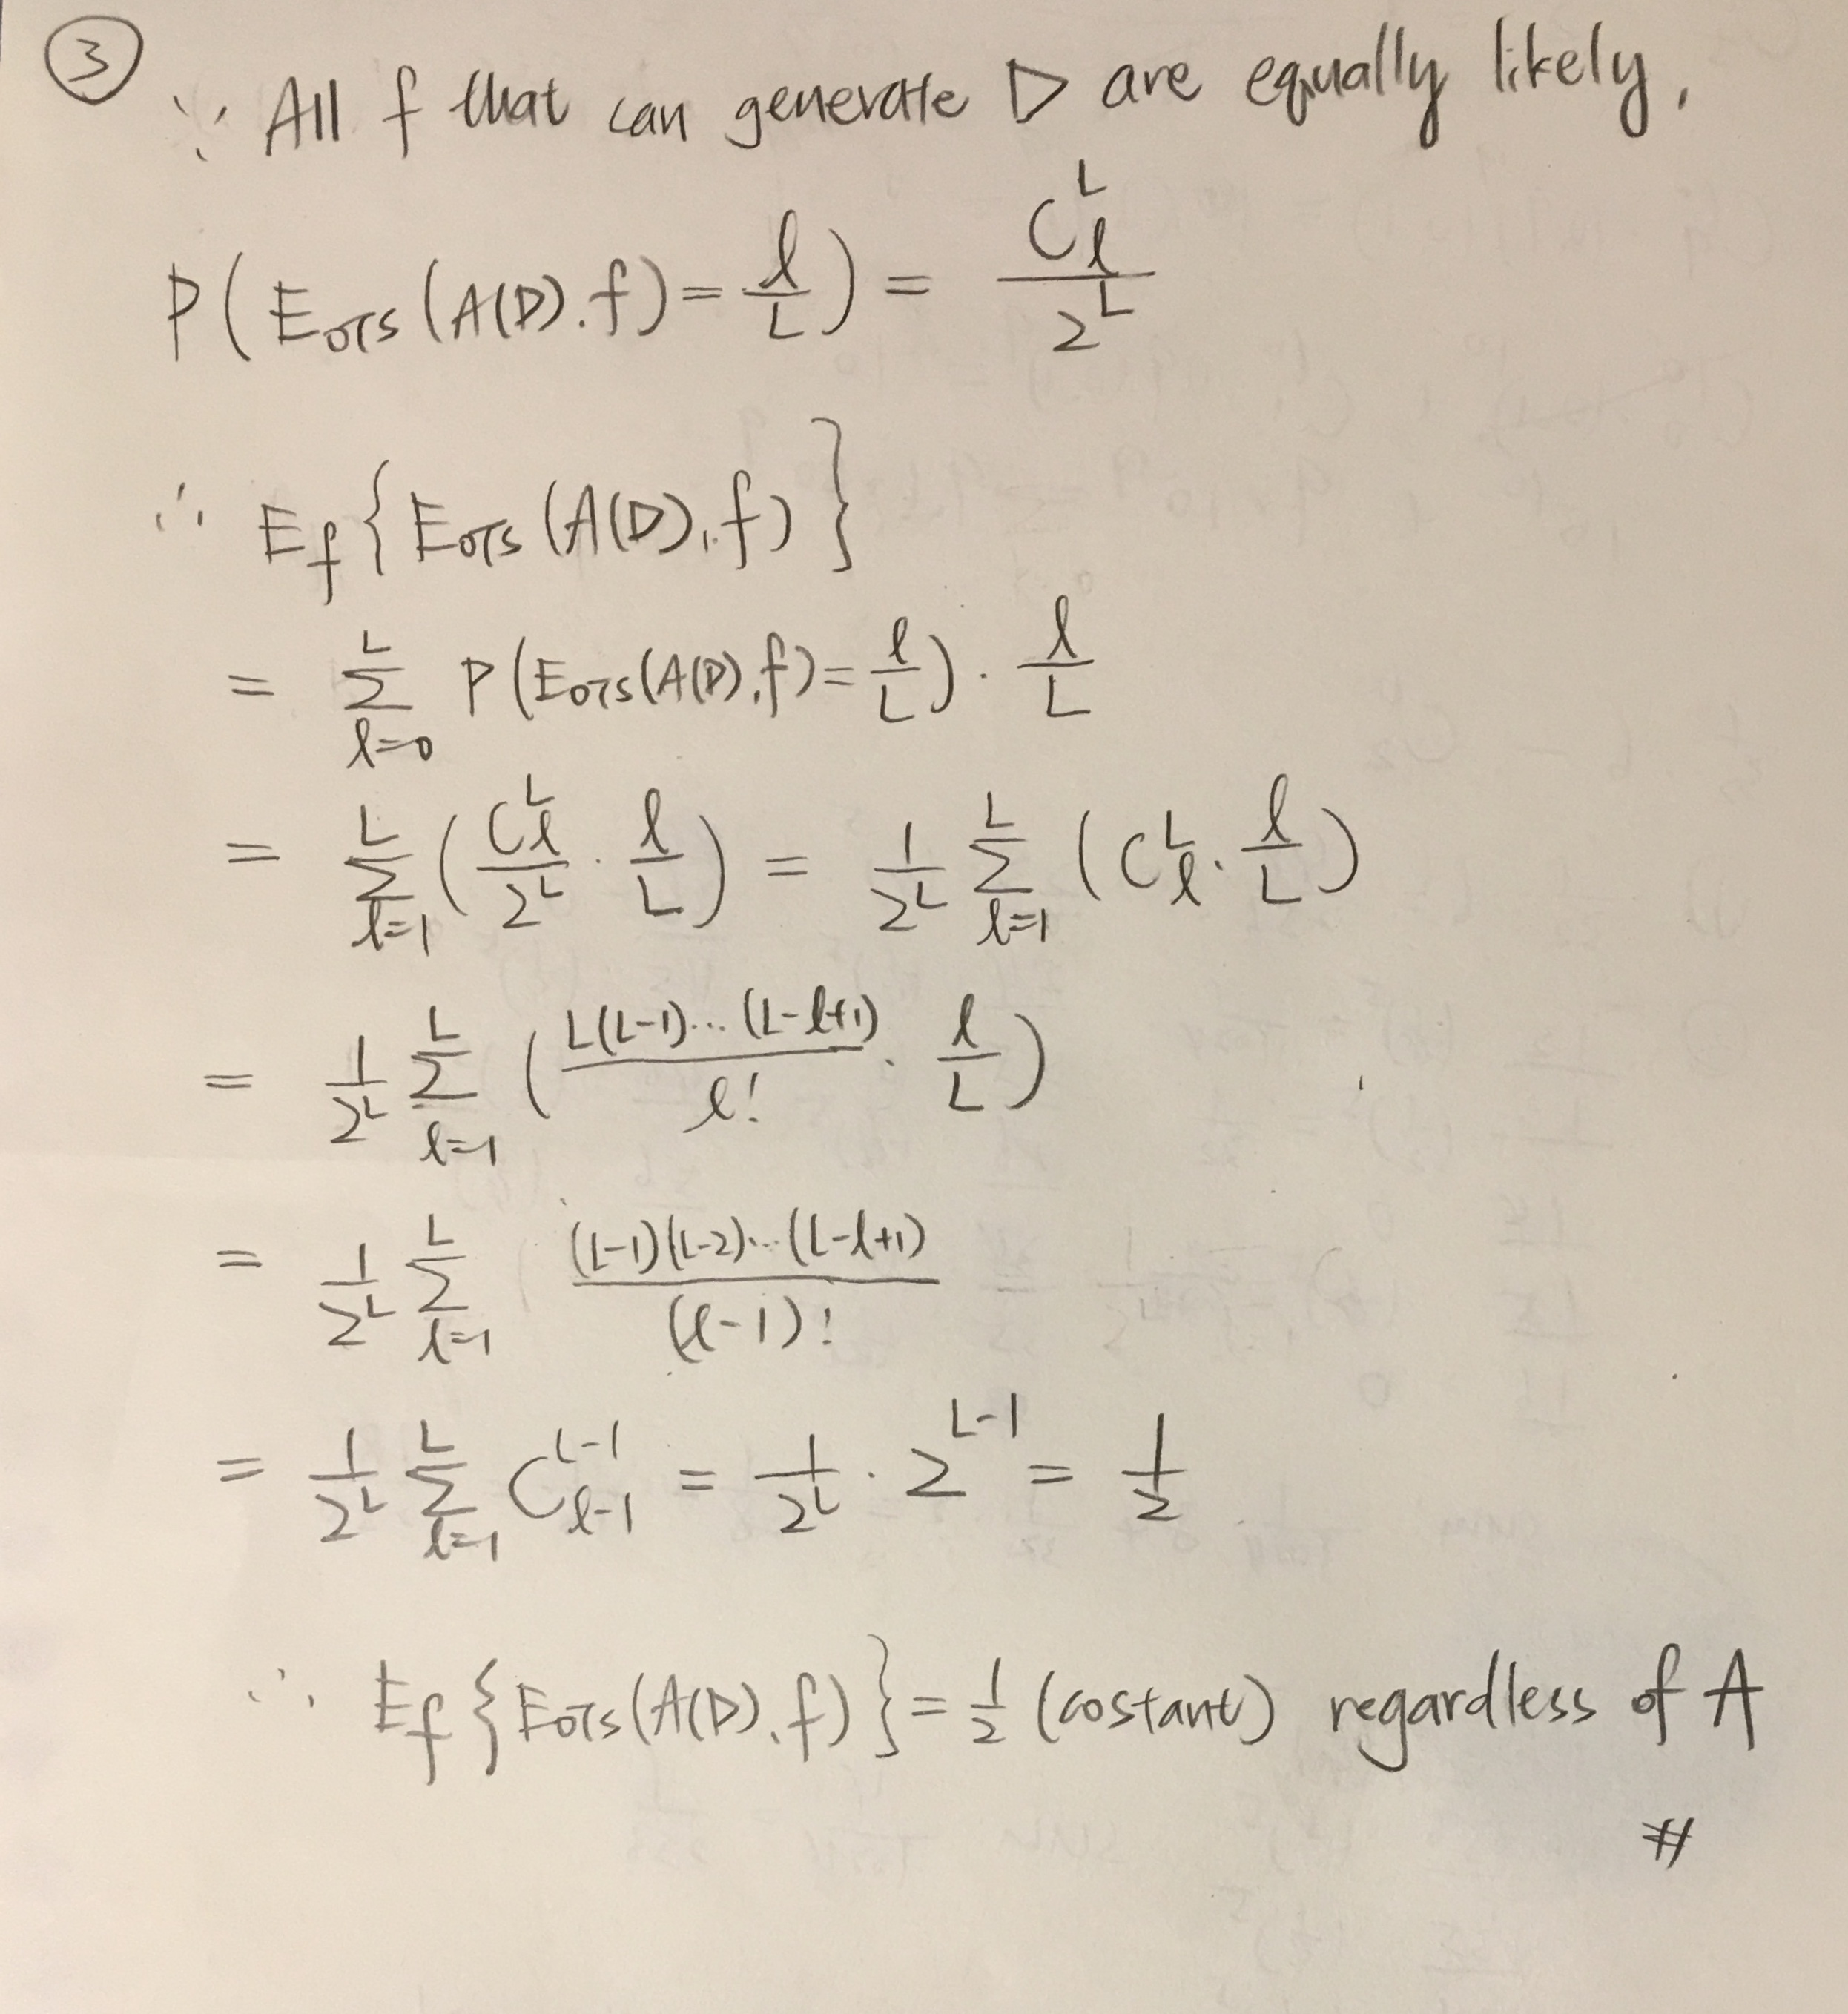 ③
∵ All f that can generate D are equally likely,
P(E_OTS(A(D), f) = ℓ/L) = C^L_ℓ / 2^L
∴ E_f{E_OTS(A(D), f)}
= Σ_{ℓ=0}^{L} P(E_OTS(A(D), f) = ℓ/L) · ℓ/L
= Σ_{ℓ=1}^{L} (C^L_ℓ / 2^L · ℓ/L) = 1/2^L Σ_{ℓ=1}^{L} (C^L_ℓ · ℓ/L)
= 1/2^L Σ_{ℓ=1}^{L} (L(L-1)...(L-ℓ+1) / ℓ! · ℓ/L)
= 1/2^L Σ_{ℓ=1}^{L} (L-1)(L-2)...(L-ℓ+1) / (ℓ-1)!
= 1/2^L Σ_{ℓ=1}^{L} C^{L-1}_{ℓ-1} = 1/2^L · 2^{L-1} = 1/2
∴ E_f{E_OTS(A(D), f)} = 1/2 (costant) regardless of A
#